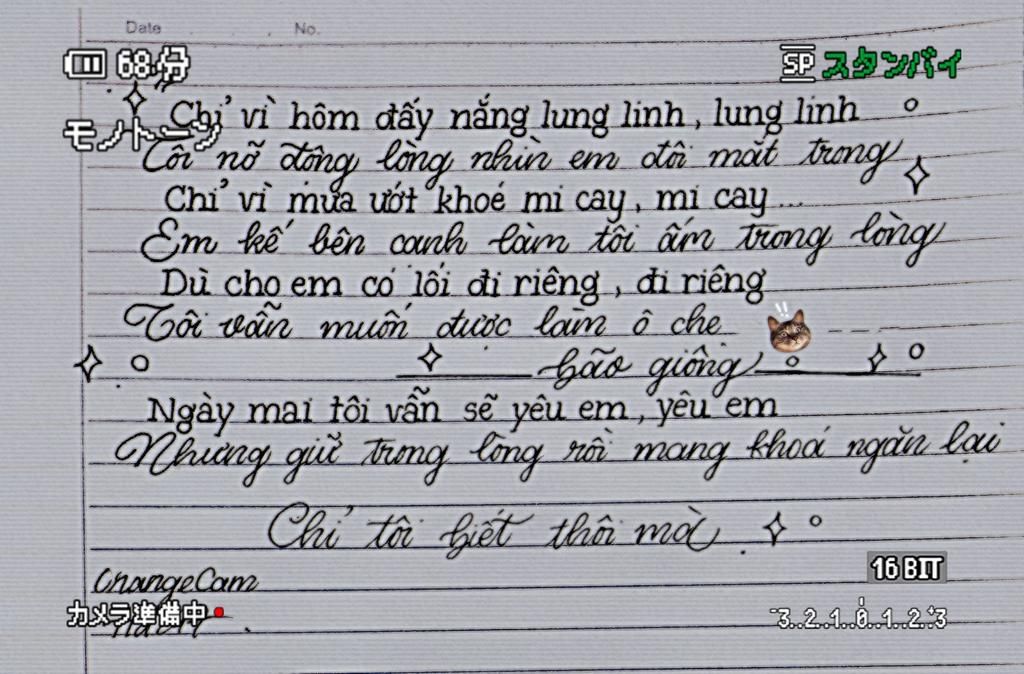 Date No.
68分
SP スタンバイ
Chỉ vì hôm đấy nắng lung linh, lung linh
モノトーン
Tôi nỡ động lòng nhìn em đôi mắt trong
Chỉ vì mưa ướt khoé mi cay, mi cay...
Em kế bên cạnh làm tôi ấm trong lòng
Dù cho em có lối đi riêng, đi riêng
Tôi vẫn muốn được làm ô che
!!
bão giông
Ngày mai tôi vẫn sẽ yêu em, yêu em
Nhưng giữ trong lòng rồi mang khoá ngăn lại
Chỉ tôi biết thôi mà
16 BIT
OrangeCam
カメラ準備中
-3..2..1..0..1..2..+3